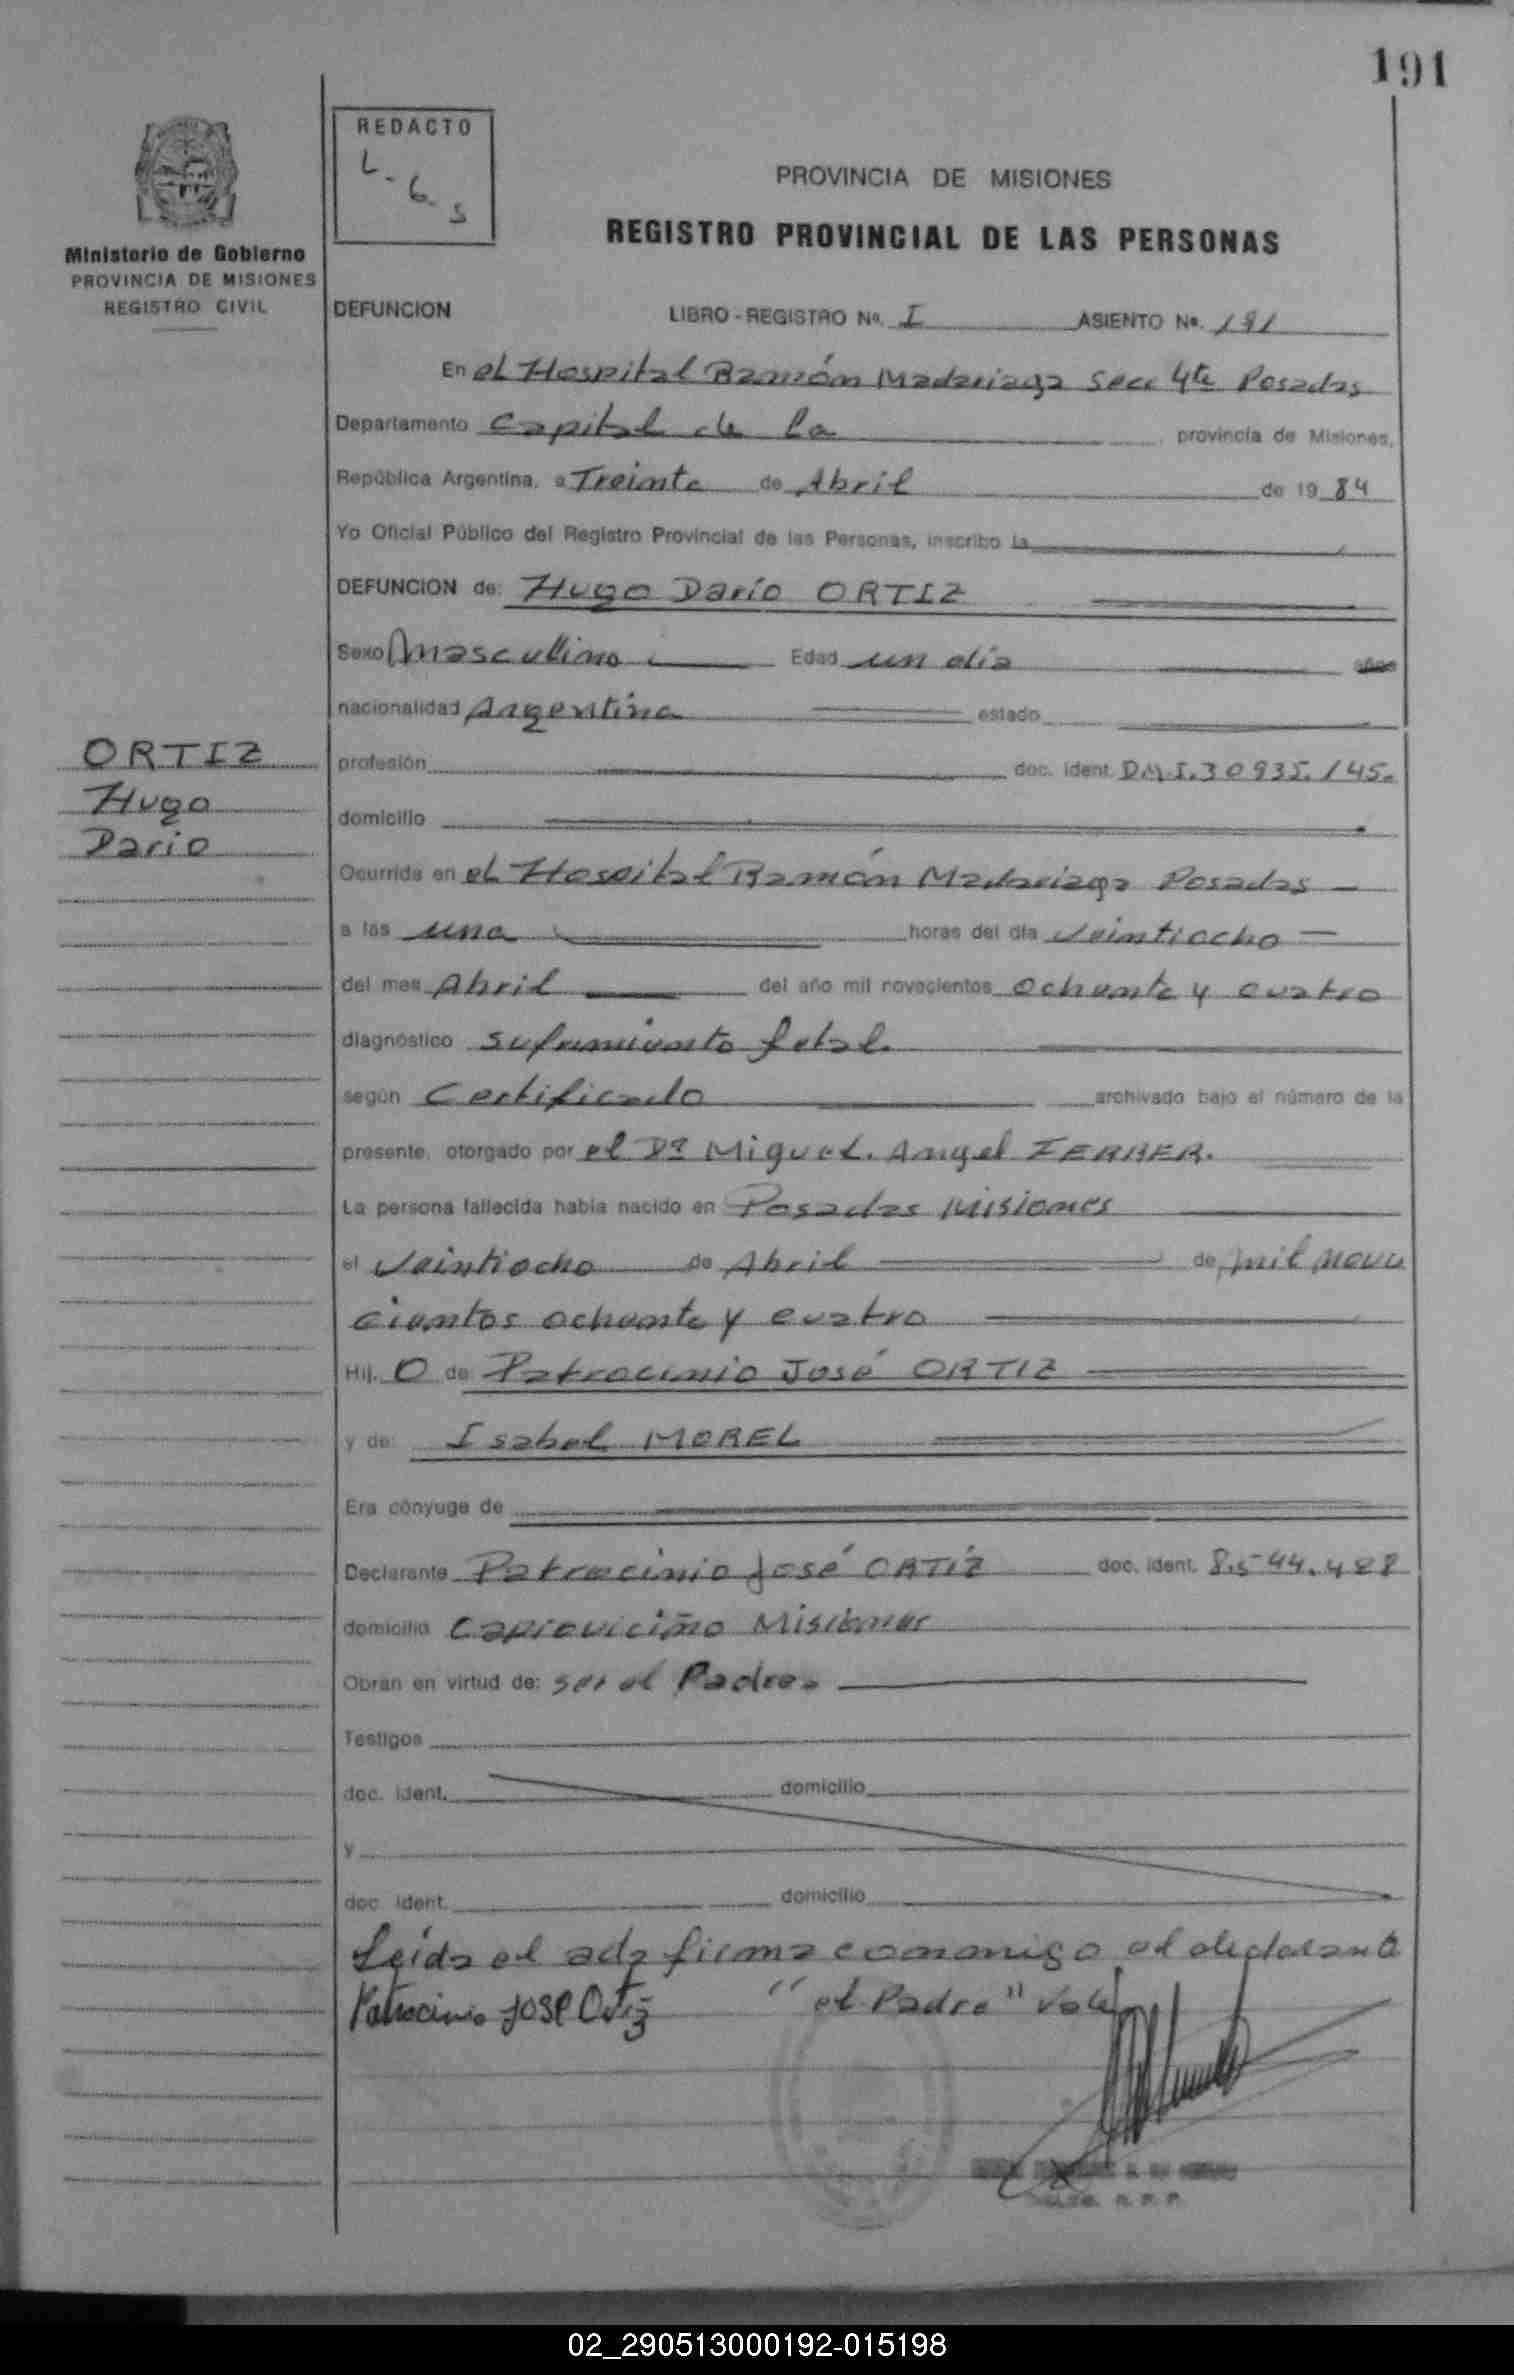 191
REDACTO
L. G. S
Ministerio de Gobierno
PROVINCIA DE MISIONES
REGISTRO CIVIL
PROVINCIA DE MISIONES
REGISTRO PROVINCIAL DE LAS PERSONAS
DEFUNCION LIBRO - REGISTRO Nº. I ASIENTO Nº. 191
En el Hospital Ramón Madariaga Secc 4ta Posadas
Departamento Capital de la provincia de Misiones,
República Argentina, a Treinta de Abril de 19 84
Yo Oficial Público del Registro Provincial de las Personas, inscribo la
DEFUNCION de: Hugo Darío ORTIZ
Sexo Masculino Edad un día años
nacionalidad Argentina estado
ORTIZ
Hugo
Dario
profesión doc. ident. DNI. 30935.145.
domicilio
Ocurrida en el Hospital Ramón Madariaga Posadas
a las una horas del día Veintiocho
del mes Abril del año mil novecientos ochenta y cuatro
diagnóstico sufrimiento fetal.
según Certificado archivado bajo el número de la
presente, otorgado por el Dr Miguel. Angel FERRER.
La persona fallecida había nacido en Posadas Misiones
el Veintiocho de Abril de mil nove
cientos ochenta y cuatro
Hij. o de Patrocinio José ORTIZ
y de: Isabel MOREL
Era cónyuge de
Declarante Patrocinio José ORTIZ doc. ident. 8.544.488
domicilio Misiones
Obran en virtud de: ser el Padre
Testigos
doc. ident. domicilio
y
doc. ident. domicilio
Leída el acta firma conmigo el declarante
Patrocinio JOSE Ortiz "el Padre" Vale
02_290513000192-015198